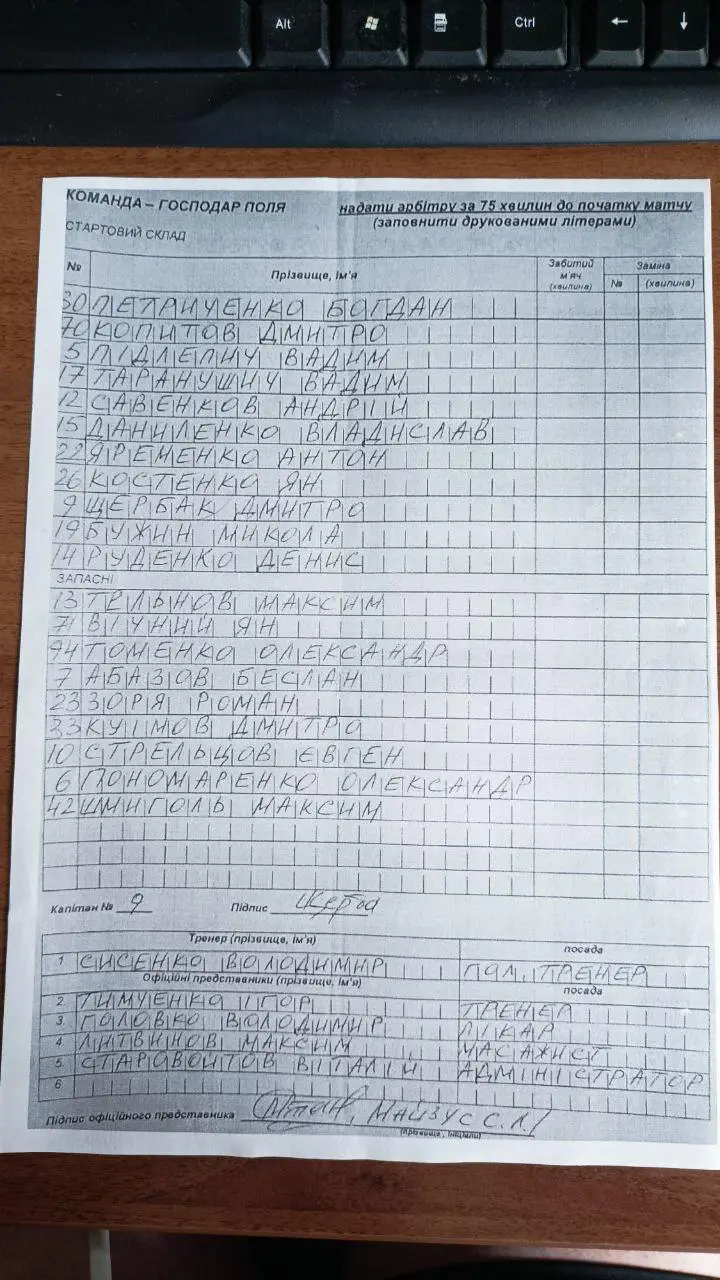 Alt
Ctrl
КОМАНДА – ГОСПОДАР ПОЛЯ
надати арбітру за 75 хвилин до початку матчу
(заповнити друкованими літерами)
СТАРТОВИЙ СКЛАД
№ Прізвище, ім'я Забитий м'яч (хвилина) Заміна № (хвилина)
30 ПЕТРИЧЕНКО БОГДАН
70 КОПИТОВ ДМИТРО
5 ПІДЛЕПИЧ ВАДИМ
17 ТАРАНУШИЧ ВАДИМ
12 САВЕНКОВ АНДРІЙ
15 ДАНИЛЕНКО ВЛАДИСЛАВ
22 ЯРЕМЕНКО АНТОН
26 КОСТЕНКО ЯН
9 ЩЕРБАК ДМИТРО
19 БУЖИН МИКОЛА
14 РУДЕНКО ДЕНИС
ЗАПАСНІ
13 ТЕЛЬНОВ МАКСИМ
71 ВІЧНИЙ ЯН
94 ТОМЕНКО ОЛЕКСАНДР
7 АБАЗОВ БЕСЛАН
23 ЗОРЯ РОМАН
33 КУІМОВ ДМИТРО
10 СТРЕЛЬЦОВ ЄВГЕН
6 ПОНОМАРЕНКО ОЛЕКСАНДР
42 ШМИГОЛЬ МАКСИМ
Капітан № 9 Підпис
Тренер (прізвище, ім'я) посада
1. СИСЕНКО ВОЛОДИМИР ПОМ. ТРЕНЕР
Офіційні представники (прізвище, ім'я) посада
2. ТИМЧЕНКО ІГОР ТРЕНЕР
3. ГОЛОВКО ВОЛОДИМИР ЛІКАР
4 ЛИТВИНОВ МАКСИМ МАСАЖИСТ
5. СТАРОВОИТОВ ВІТАЛІЙ АДМІНІСТРАТОР
6
Підпис офіційного представника МАЙЗУС С.Л.
(прізвище, ініціали)